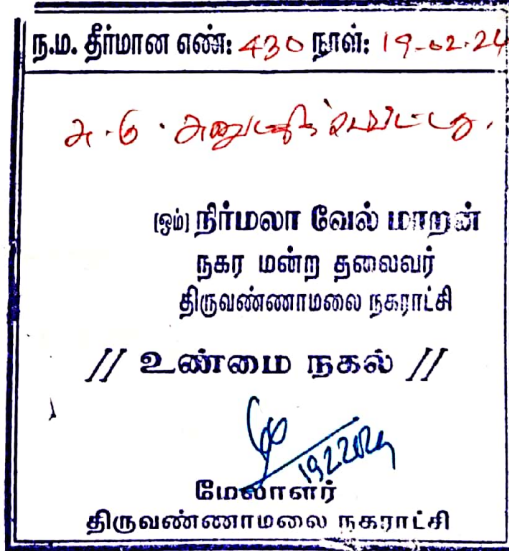 ந.ம. தீர்மான எண்: 430 நாள்: 19-02-24
அ.கு. அனுமதிக்கப்பட்டது.
(ஒம்) நிர்மலா வேல் மாறன்
நகர மன்ற தலைவர்
திருவண்ணாமலை நகராட்சி
// உண்மை நகல் //
1922024
மேலாளர்
திருவண்ணாமலை நகராட்சி